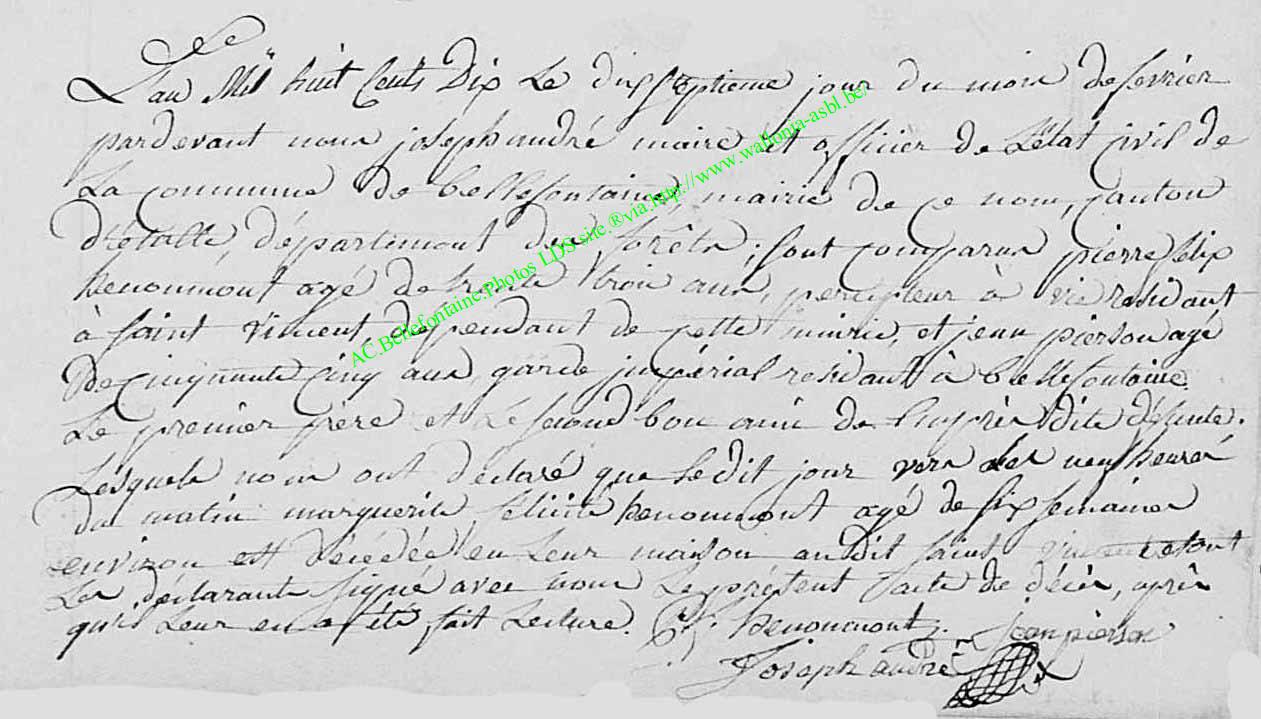 L'an Mil huit Cents Dix Le dixseptieme jour du mois defevrier
pardevant nous joseph andré maire et officier de Létat Civil de
La commune de bellefontaine, mairie de ce nom, Canton
D'etalle, département des forêts; sont comparus pierre felix
henoumont agé de trente trois ans, percepteur à vie residant
à saint vincent, dépendant de cette mairie, et jean pierson agé
De Cinquante Cinq ans, garde impérial residant à bellefontaine
Le premier père et Le second bon ami de L'après dite défunte.
Lesquels nous ont déclaré que Ledit jour vers les neuf heures
du matin marguerite félicité henoumont agé de six semaines
environ est décédée en Leur maison audit saint vincent et ont
Les déclarants signé avec nous Le présent acte de décès, après
qu'il Leur en a été fait Lecture. P: f: henoumont. Jean pierson
Joseph andré
AC.Bellefontaine.Photos LDS site.®via.http://www.wallonia-asbl.be/